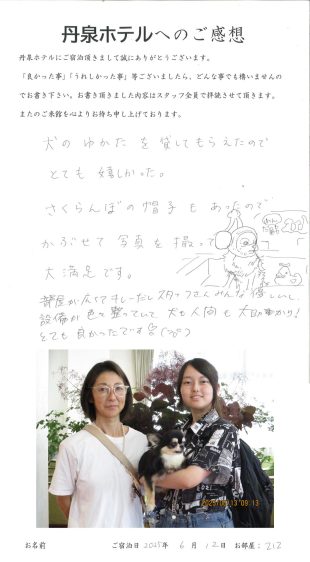 丹泉ホテルへのご感想
丹泉ホテルにご宿泊頂きまして誠にありがとうございます。
「良かった事」「うれしかった事」等ございましたら、どんな事でも構いませんの
でお書き下さい。お書き頂きました内容はスタッフ全員で拝読させて頂きます。
またのご来館を心よりお待ち申し上げております。
犬のゆかたを貸してもらえたので
とても嬉しかった。
さくらんぼの帽子もあったので
かぶせて写真を撮って
大満足です。
部屋が広くてキレイだしスタッフさんみんな優しいし、
設備が色々整っていて犬も人間も大助かり!
とても良かったです
2025/06/13 09:13
お名前 ご宿泊日 2025年 6月 12日 お部屋: 212